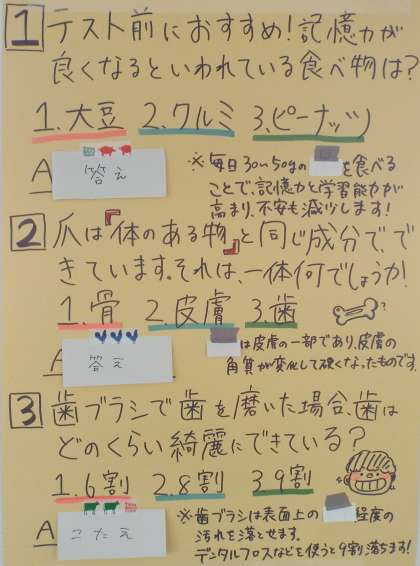 1 テスト前におすすめ!記憶力が
良くなるといわれている食べ物は?
1.大豆 2.クルミ 3.ピーナッツ
A 答え
※毎日30〜50gの を食べる
ことで、記憶力と学習能力が
高まり、不安も減少します!
2 爪は『体のある物』と同じ成分で、で
きています。それは、一体何でしょうか?
1.骨 2.皮膚 3.歯
A 答え
は皮膚の一部であり、皮膚の
角質が変化して硬くなったものです。
3 歯ブラシで歯を磨いた場合、歯は
どのくらい綺麗にできている?
1.6割 2.8割 3.9割
A こたえ
※歯ブラシは表面上の 程度の
汚れを落とせます。
デンタルフロスなどを使うと9割落ちます!